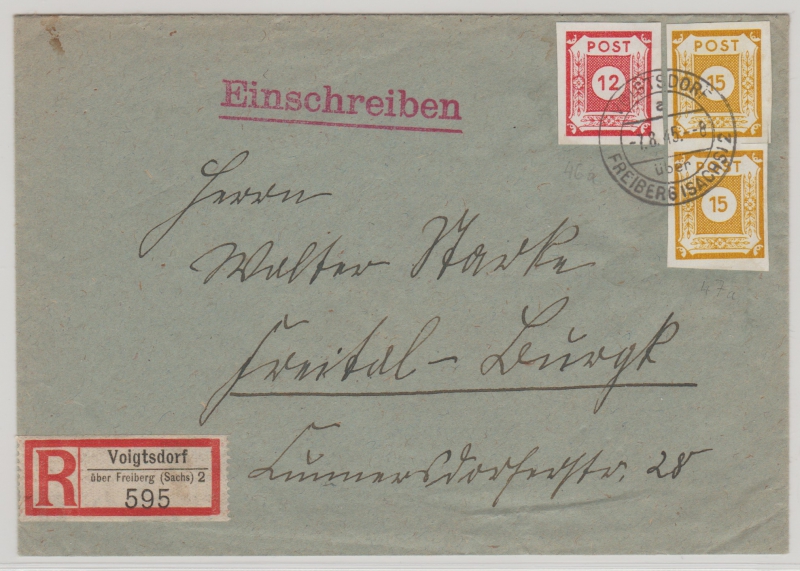 Einschreiben
POST
12
POST
15
POST
15
TSDORF
a
-7.8.45.-8
über
FREIBERG (SACHS) 2
46a
47a
Herrn
Walter Starke
Freital - Burgk
Cunnersdorferstr. 28
R
Voigtsdorf
über Freiberg (Sachs) 2
595